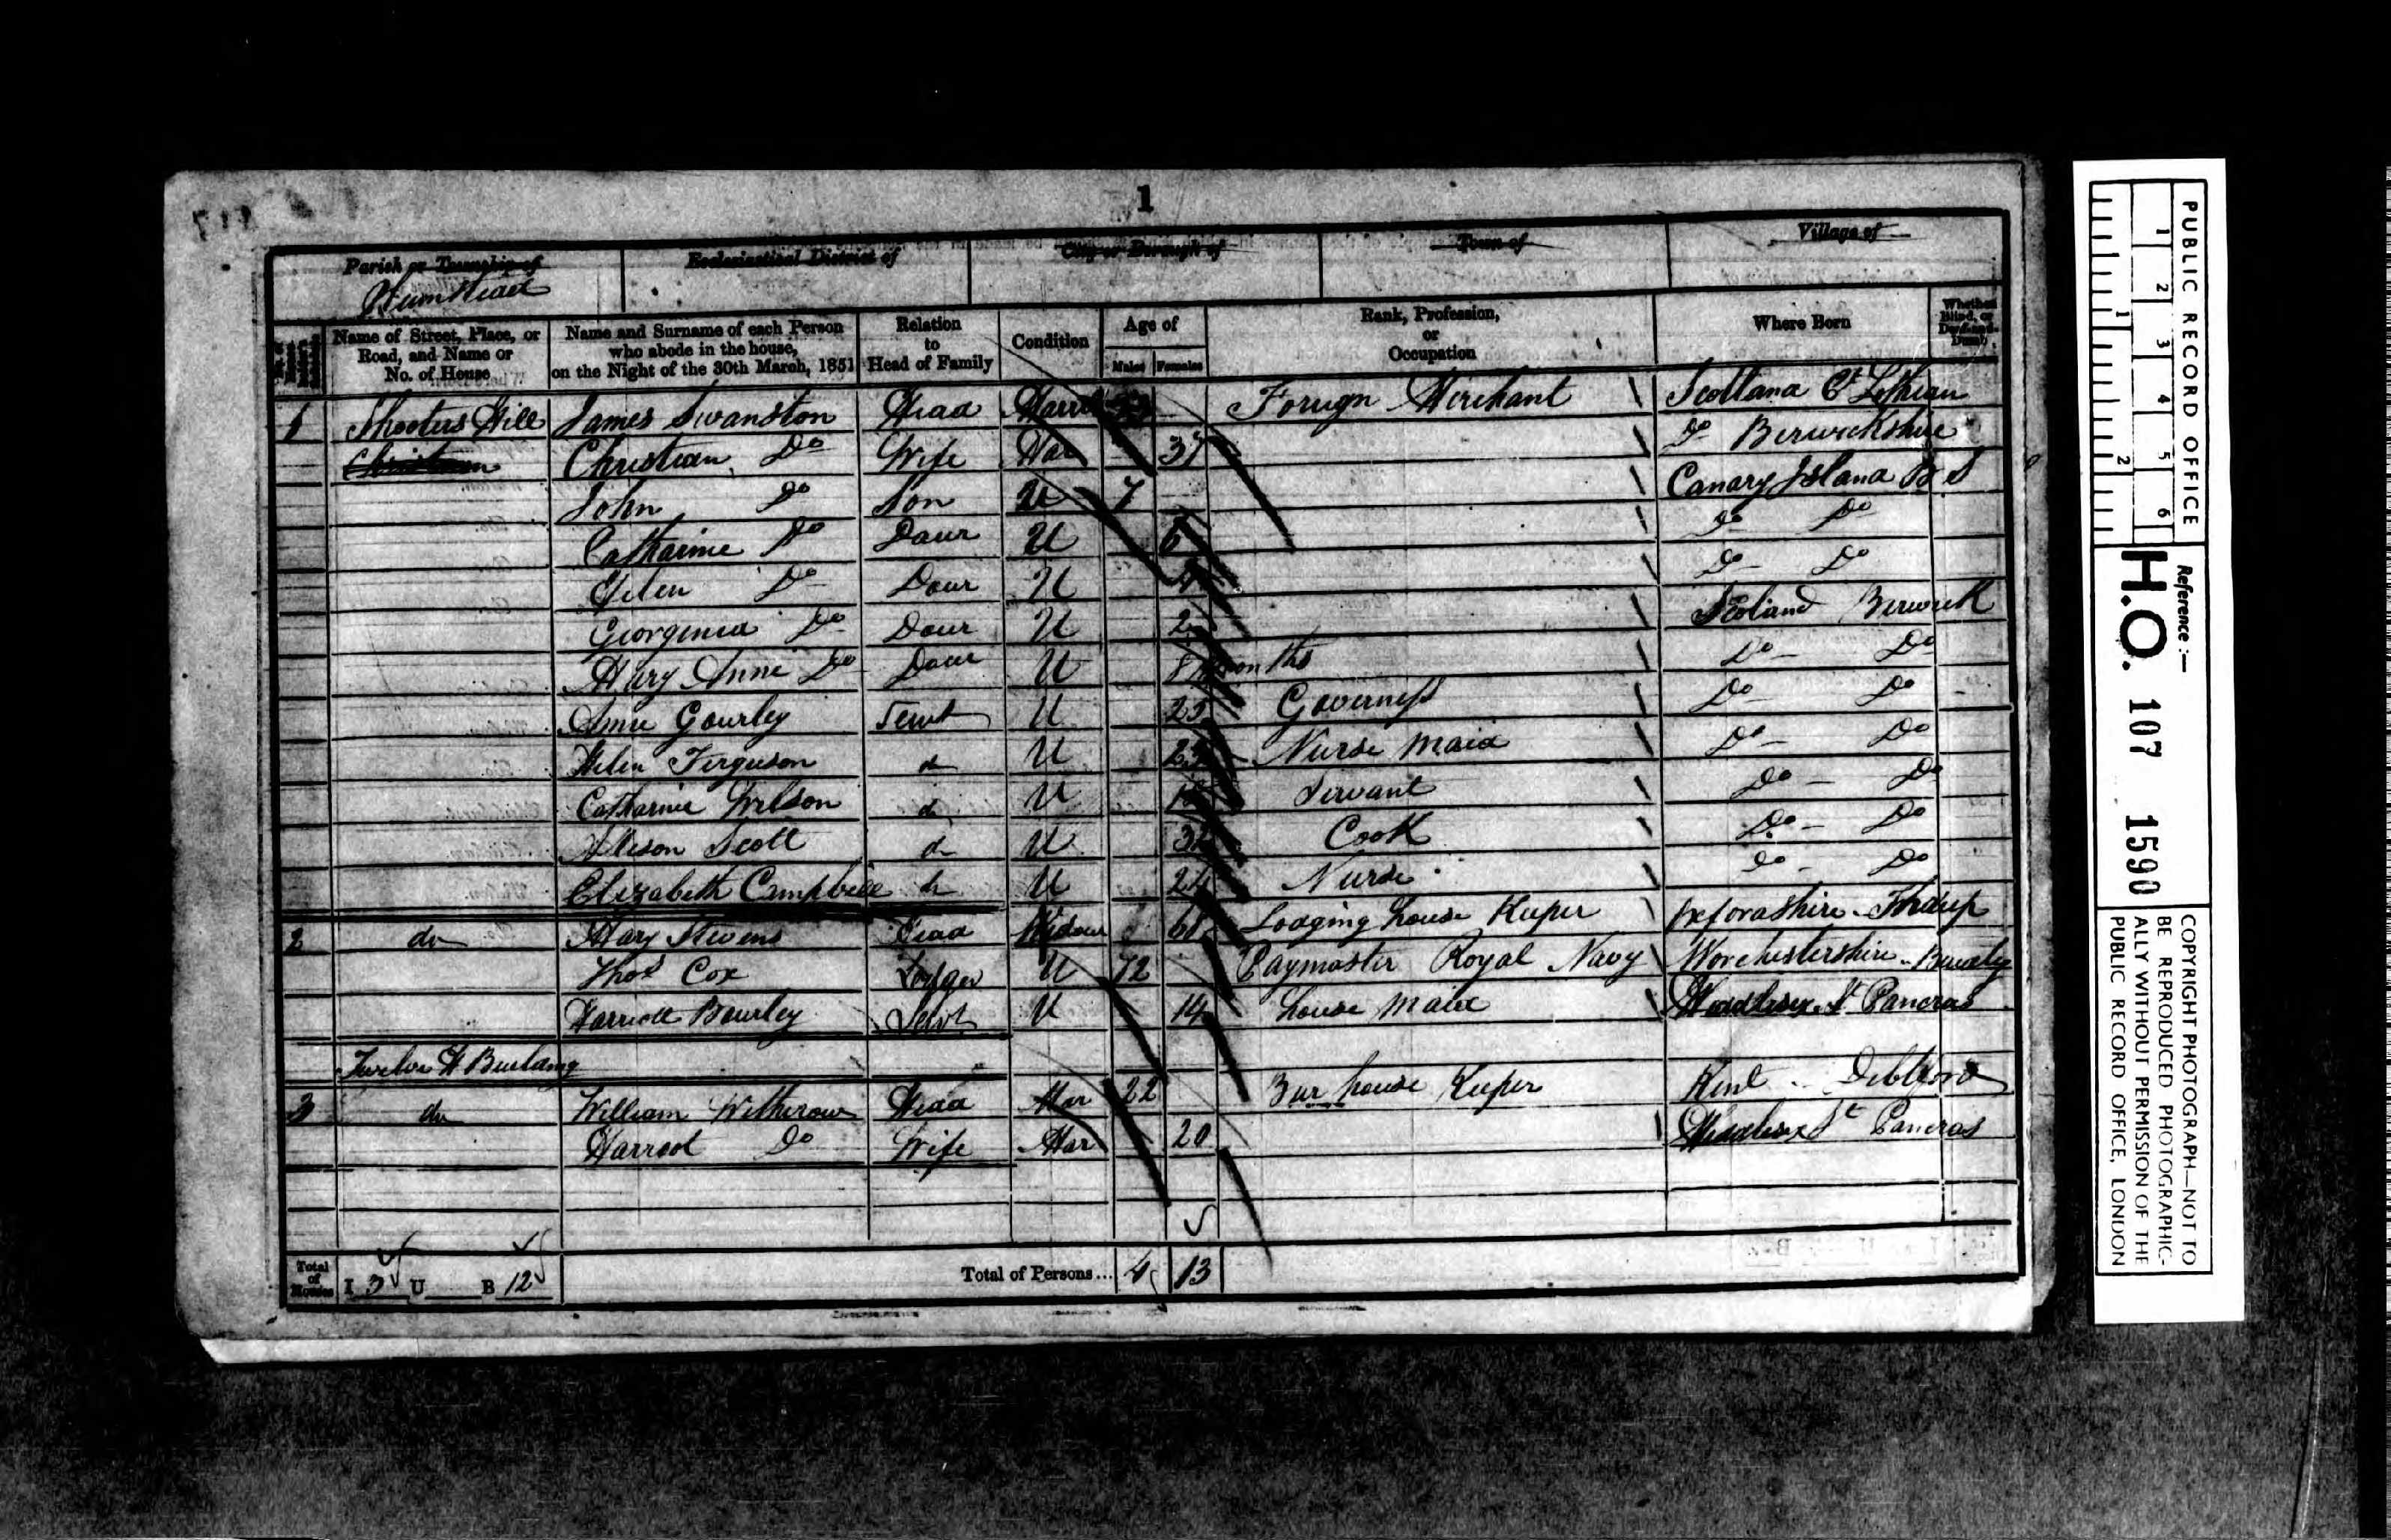 1
Parish or Township of
Ecclesiastical District of
City or Borough of
Town of
Village of
Plumstead
Name of Street, Place, or Road, and Name or No. of House
Name and Surname of each Person who abode in the house, on the Night of the 30th March, 1851
Relation to Head of Family
Condition
Age of
Males Females
Rank, Profession, or Occupation
Where Born
Whether Blind, or Deaf-and-Dumb
1 Shooters Hill James Swanston Head Foreign Merchant Scotland Et Lothian
Christian Do Wife Mar 37 Do Berwickshire
John Do Son U 7 Canary Island B S
Catharine Do Daur U 6 Do Do
Helen Do Daur U 4 Do Do
Georgenia Do Daur U 2 Scotland Berwick
Mary Anne Do Daur U 8 months Do Do
Gourley Servt U 25 Governess Do Do
Helen Ferguson do U Nurse Maid Do Do
Catharine Wilson do U Servant Do Do
Alison Scott do U Cook Do Do
Elizabeth Campbell do U Nurse Do Do
2 do Mary Stevens Head Widow Lodging house Keeper Oxfordshire
Thos Cox Lodger U 72 Paymaster Royal Navy Worchestershire Bewdley
Harriott Servt U 14 house Maid Middlesex St Pancras
Twelve H Building
3 do William Witherow Head Mar 22 Beer house Keeper Kent Debtford
Harreot Do Wife Mar 20 Middlesex St Pancras
Total of Houses I 3 U B 12 Total of Persons... 4 13
PUBLIC RECORD OFFICE
1 2 3 4 5 6
1 2
Reference :-
H.O. 107 1590
COPYRIGHT PHOTOGRAPH—NOT TO
BE REPRODUCED PHOTOGRAPHIC-
ALLY WITHOUT PERMISSION OF THE
PUBLIC RECORD OFFICE, LONDON